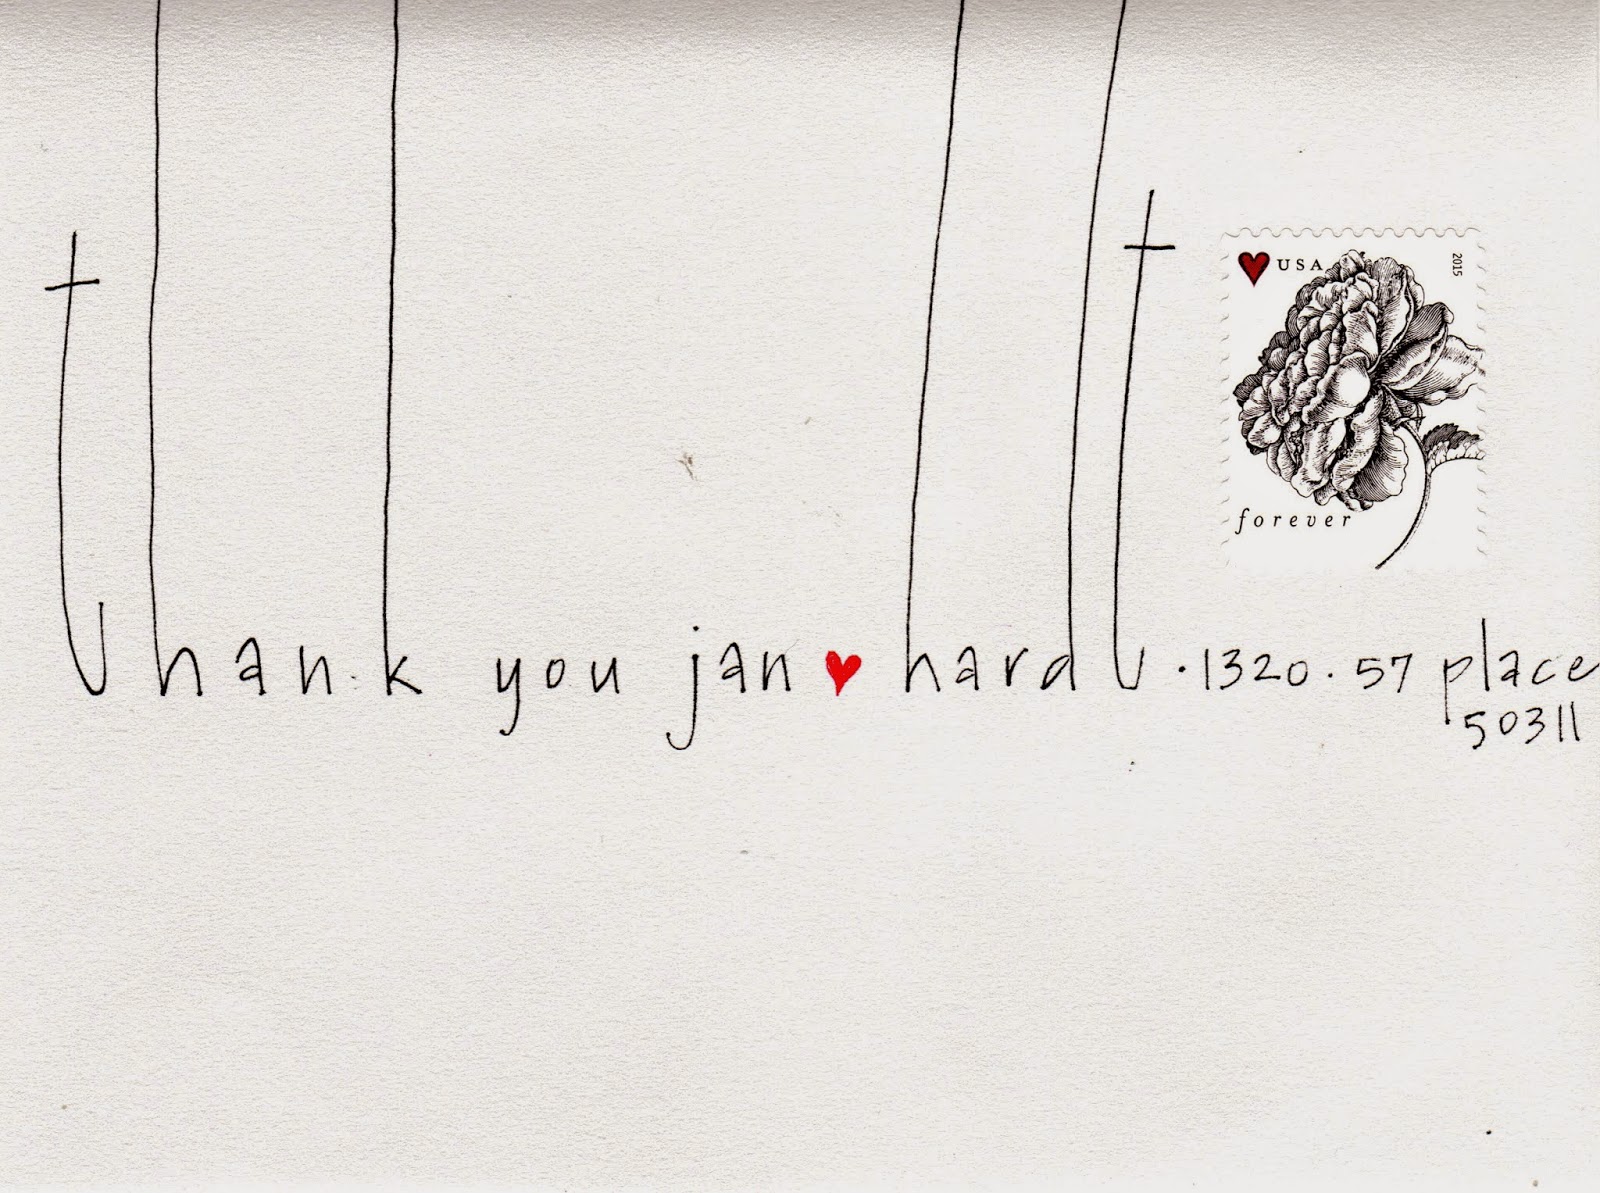 USA 2015
forever
thank you jan ♥ hardt · 1320 · 57 place
50311